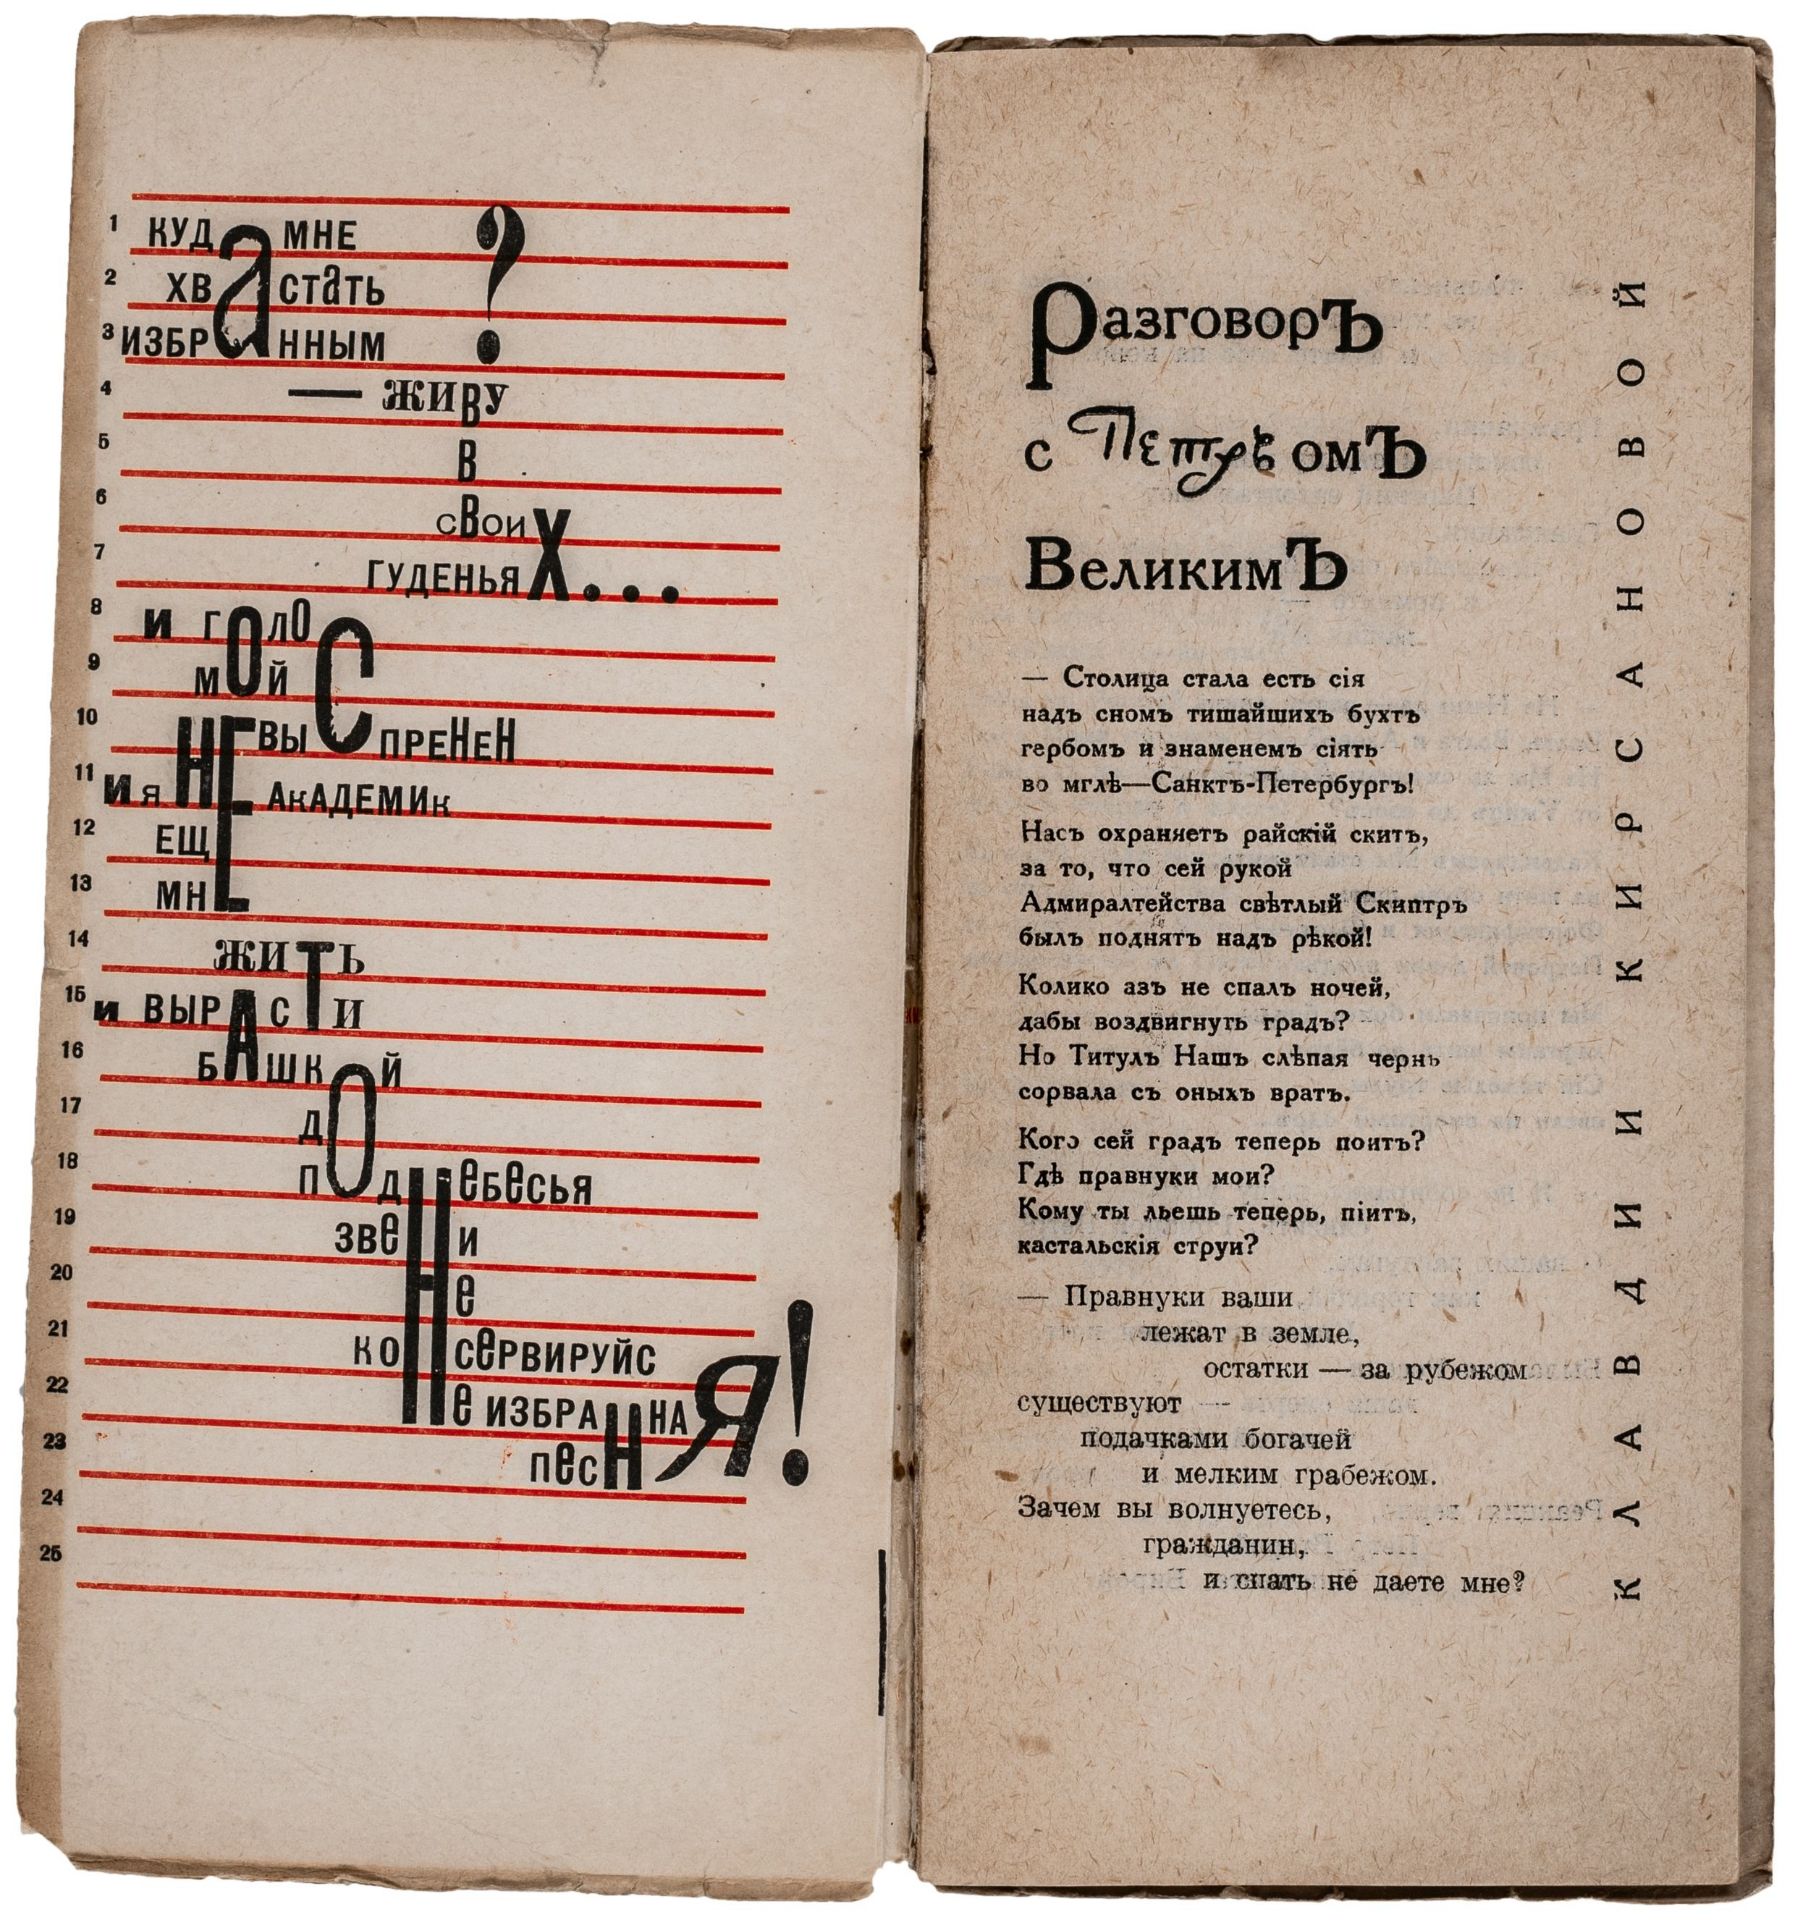 1 КУДа МНЕ ?
2 ХВаСТаТЬ
3 ИЗБРаННЫМ
4 — ЖИВУ
5 В
6 СВОИХ
7 ГУДЕНЬЯХ...
8 И ГОЛОС
9 МОЙ
10 НЕВЫСПРЕНЕН
11 И Я НЕ АКАДЕМИК
12 ЕЩЕ
13 МНЕ
14 ЖИТЬ
15 И ВЫРАСТИ
16 БАШКОЙ
17 ДО
18 ПОДНЕБЕСЬЯ
19 ЗВЕНИ
20 НЕ
21 КОНСЕРВИРУЙСЯ!
22 НЕИЗБРАННАЯ
23 ПЕСНЯ
24
25
РазговорЪ
с ПетрѣомЪ
ВеликимЪ
— Столица стала есть сія
надъ сномъ тишайшихъ бухтъ
гербомъ и знаменемъ сіять
во мглѣ—Санктъ-Петербургъ!
Насъ охраняетъ райскій скитъ,
за то, что сей рукой
Адмиралтейства свѣтлый Скиптръ
былъ поднятъ надъ рѣкой!
Колико азъ не спалъ ночей,
дабы воздвигнуть градъ?
Но Титулъ Нашъ слѣпая чернь
сорвала съ оныхъ вратъ.
Кого сей градъ теперь поитъ?
Гдѣ правнуки мои?
Кому ты льешь теперь, піитъ,
кастальскія струи?
— Правнуки ваши
лежат в земле,
остатки — за рубежом
существуют
подачками богачей
и мелким грабежом.
Зачем вы волнуетесь,
гражданин,
и спать не даете мне?
КЛАВДИИ КИРСАНОВОЙ